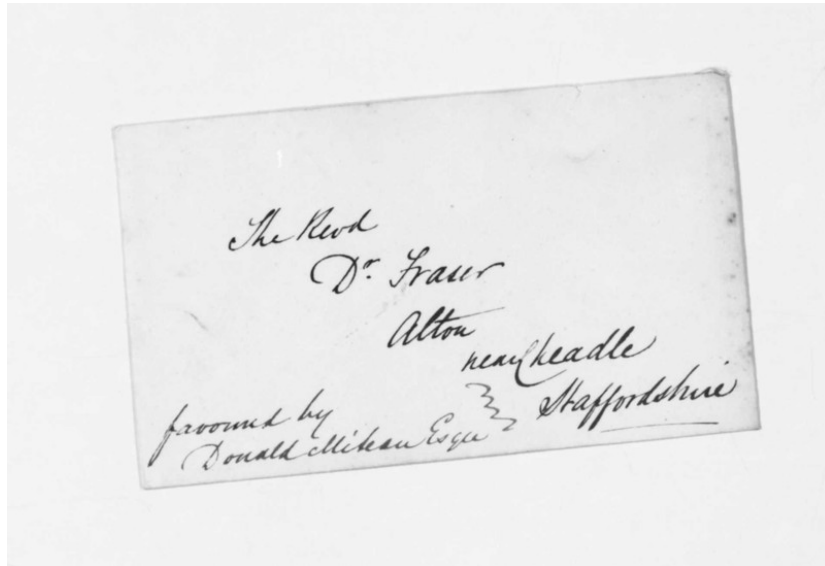 The Revd
Dr. Fraser
Alton
near Cheadle
Staffordshire
favound by
Donald Esqre